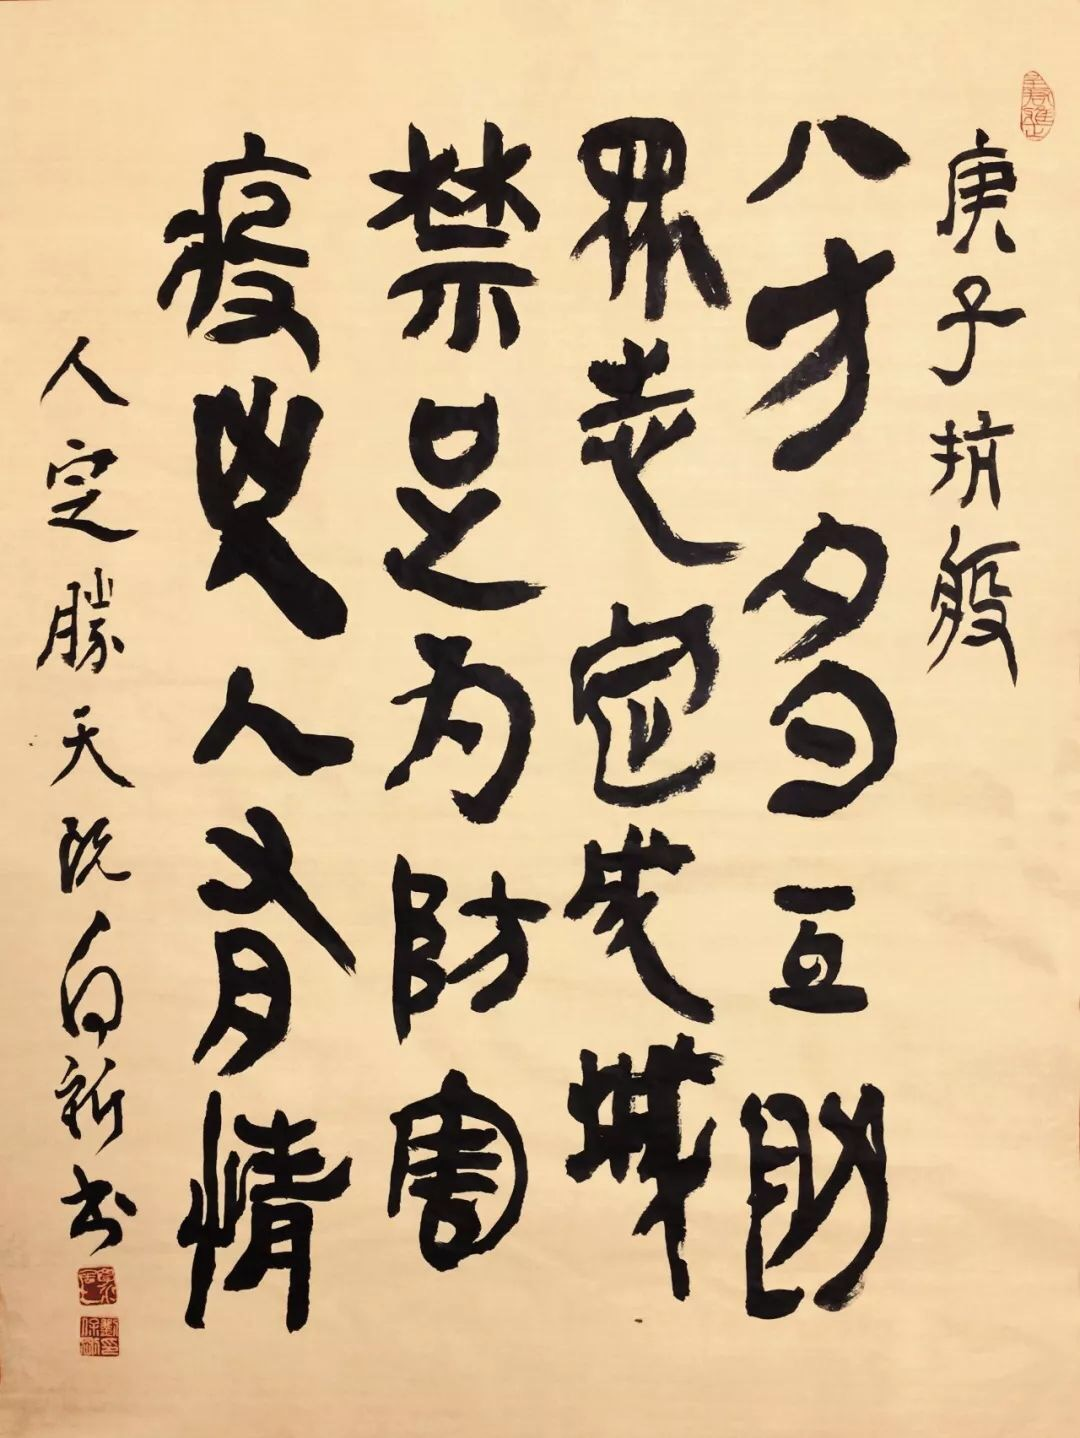 庚子抗疫
八方多互助
眾志定成城
禁足为防害
疫兇人有情
人定勝天 书